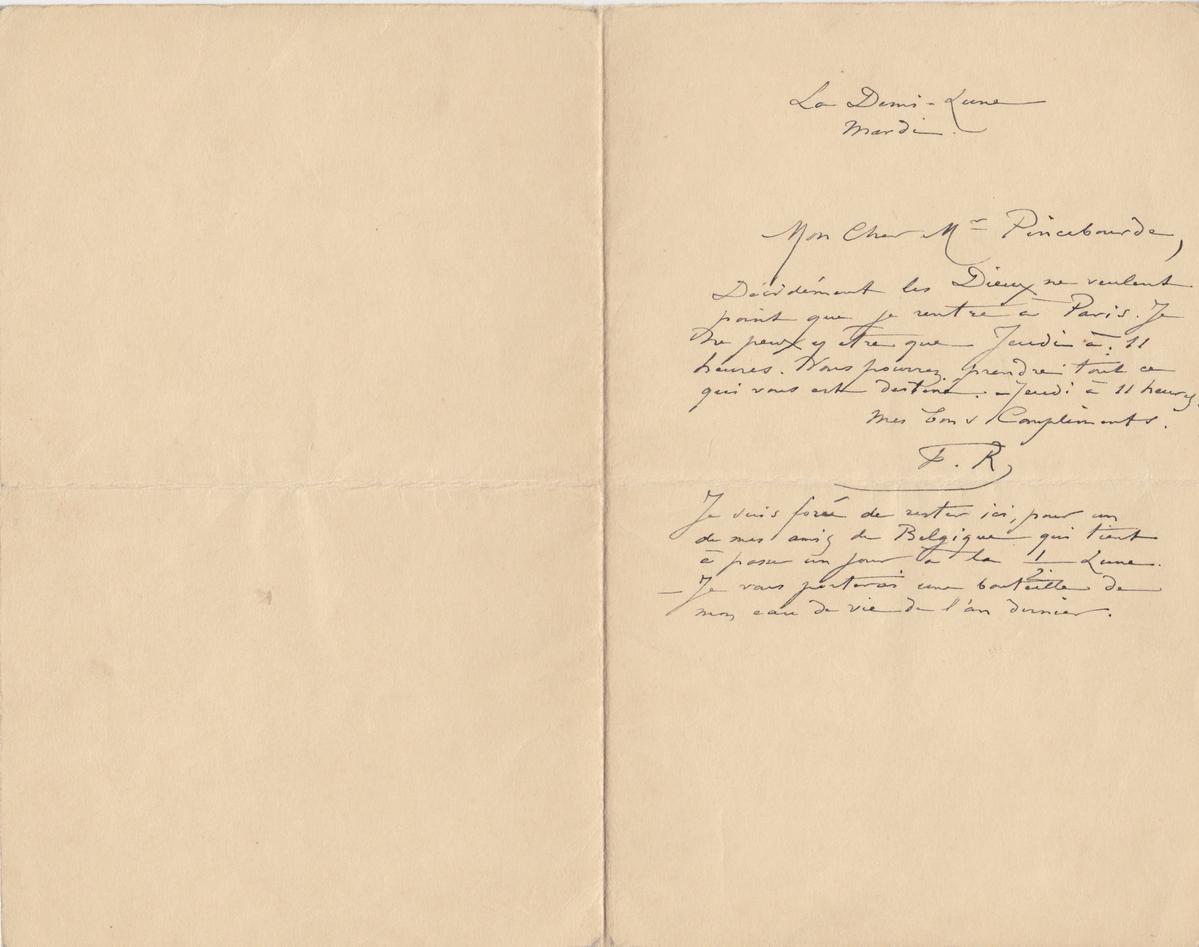 La Demi-Lune
Mardi.
Mon Cher Mr Pincebourde,
Décidément les Dieux ne veulent
point que je rentre à Paris. Je
ne peux y être que Jeudi à 11
heures. Vous pourrez prendre tout ce
qui vous est destiné. - Jeudi à 11 heures.
Mes bons Compliments.
F. R
Je suis forcé de rester ici, pour un
de mes amis de Belgique qui tient
à passer un jour à la 1/2 Lune.
- Je vous porterai une bouteille de
mon eau de vie de l'an dernier.